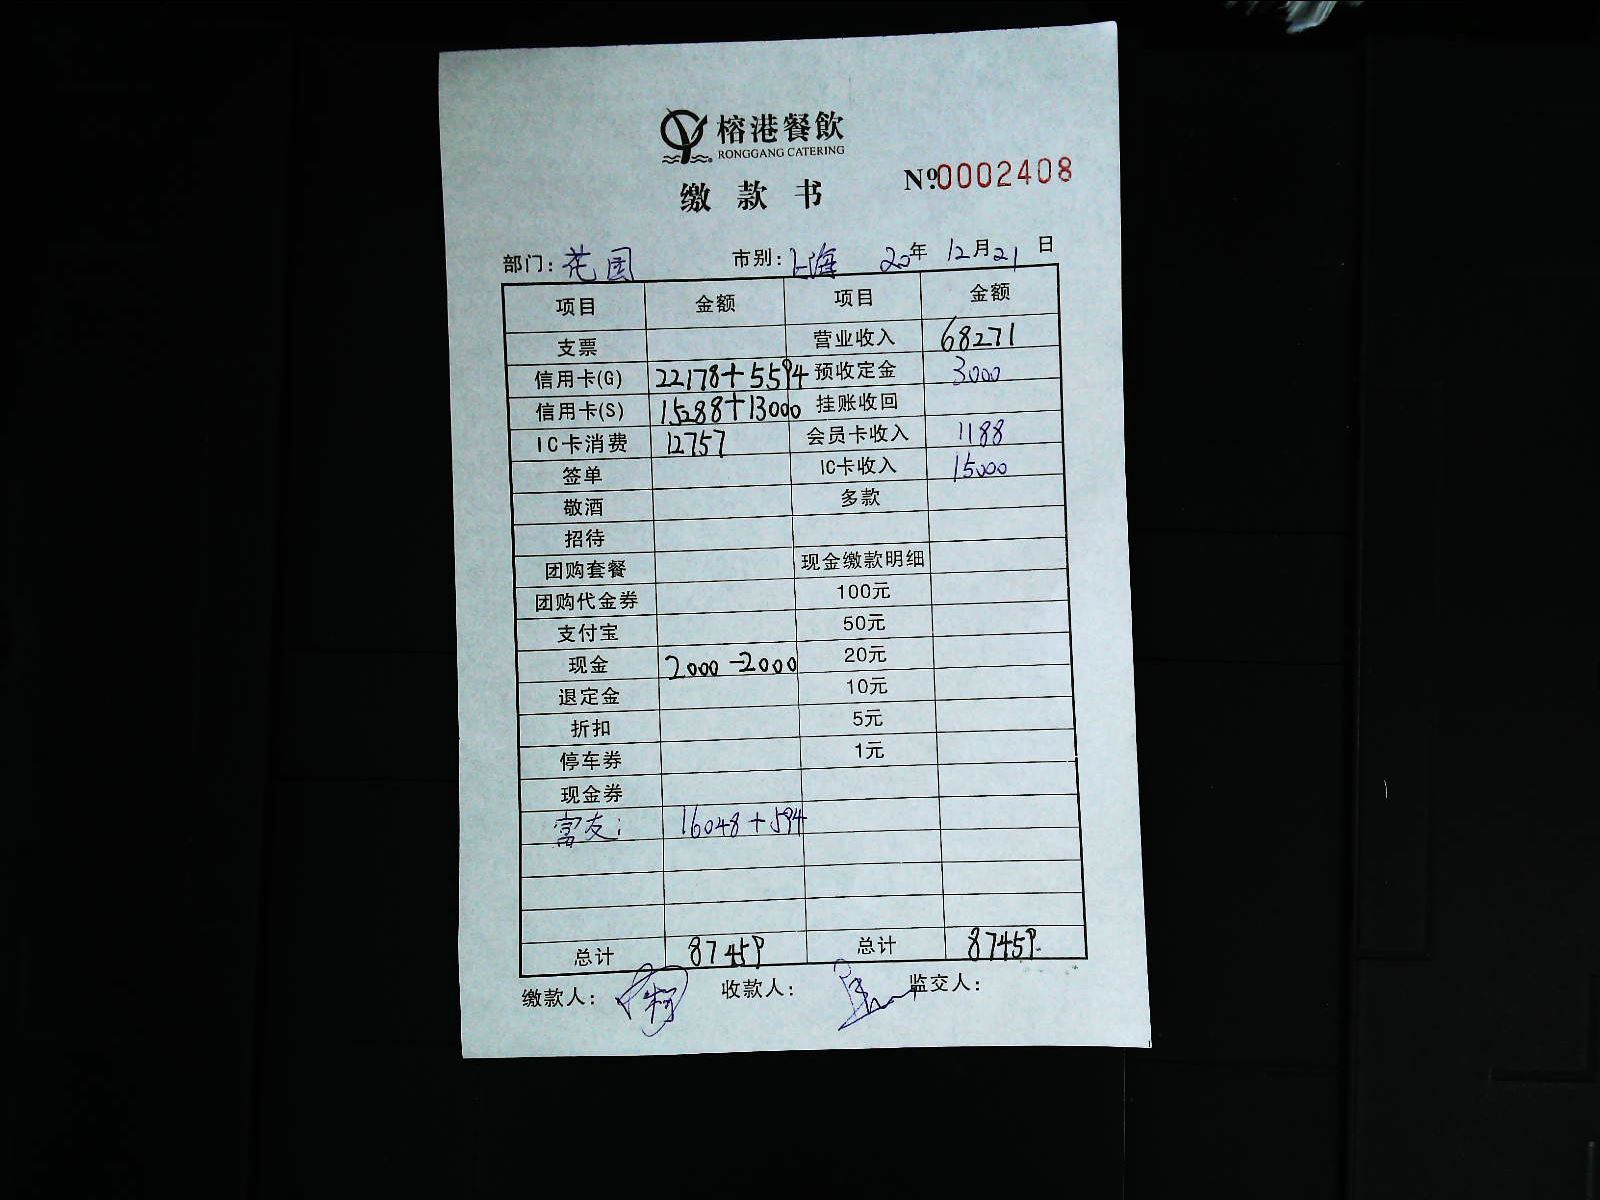 榕港餐飲
RONGGANG CATERING
缴款书
№0002408
部门：花园 市别：上海 20年 12月21日
项目 金额 项目 金额
支票 营业收入 68271
信用卡(G) 22178+5594 预收定金 3000
信用卡(S) 15288+13000 挂账收回
IC卡消费 12757 会员卡收入 1188
签单 IC卡收入 15000
敬酒 多款
招待
团购套餐 现金缴款明细
团购代金券 100元
支付宝 50元
现金 2000-2000 20元
退定金 10元
折扣 5元
停车券 1元
现金券
富友： 16048+594
总计 87459 总计 87459
缴款人： 收款人： 监交人：